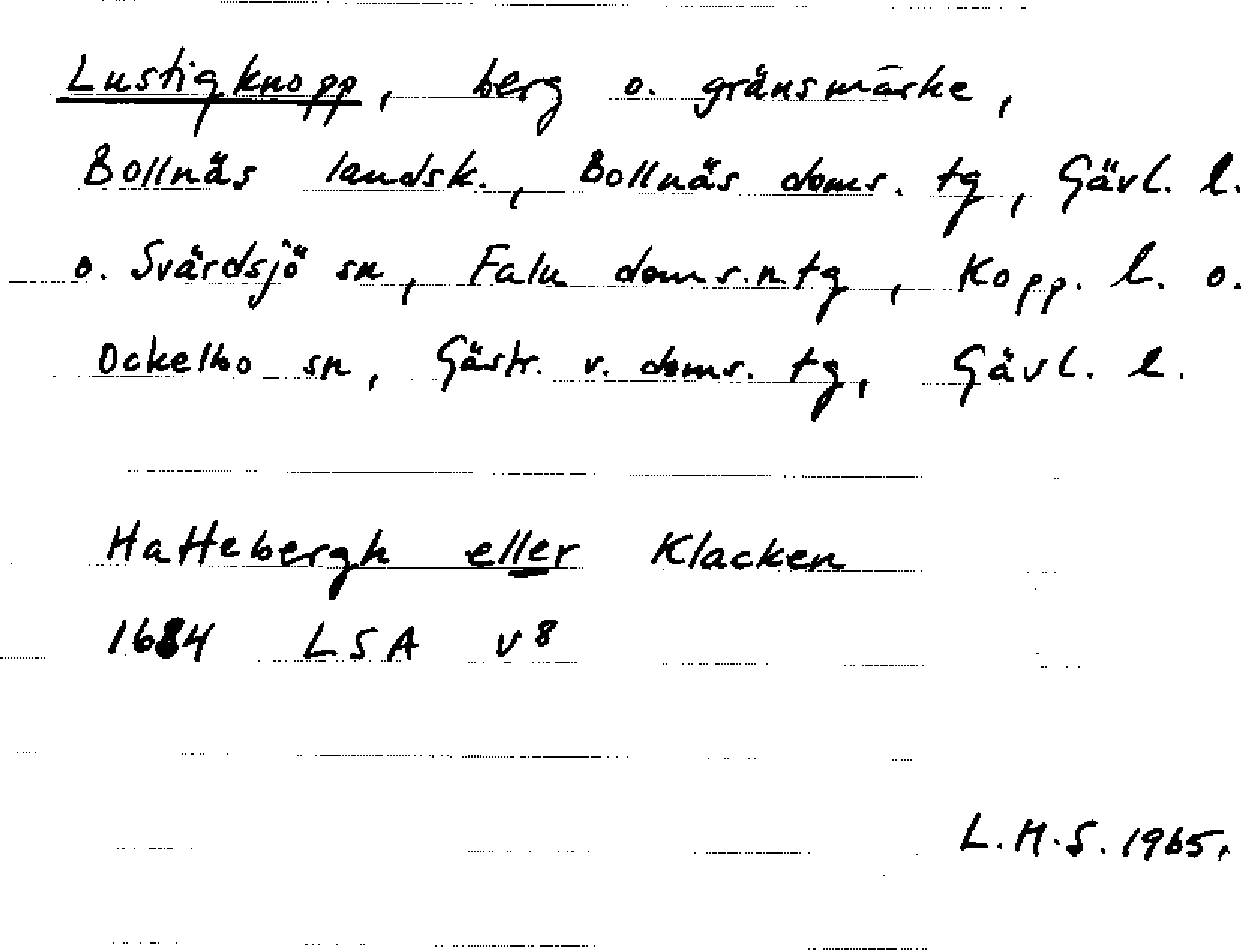 Lustigknopp, berg o. gränsmärke,
Bollnäs landsk., Bollnäs doms. tg, Gävl. l.
o. Svärdsjö sn, Falu doms.n.tg, Kopp. l. o.
Ockelbo sn, Gästr. v. doms. tg, Gävl. l.
Hattebergh eller Klacken
1684 LSA v8
L.H.S. 1965.